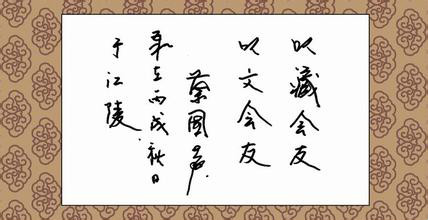 以藏会友
以文会友
蔡國声
歲在丙戌秋日
于江陵